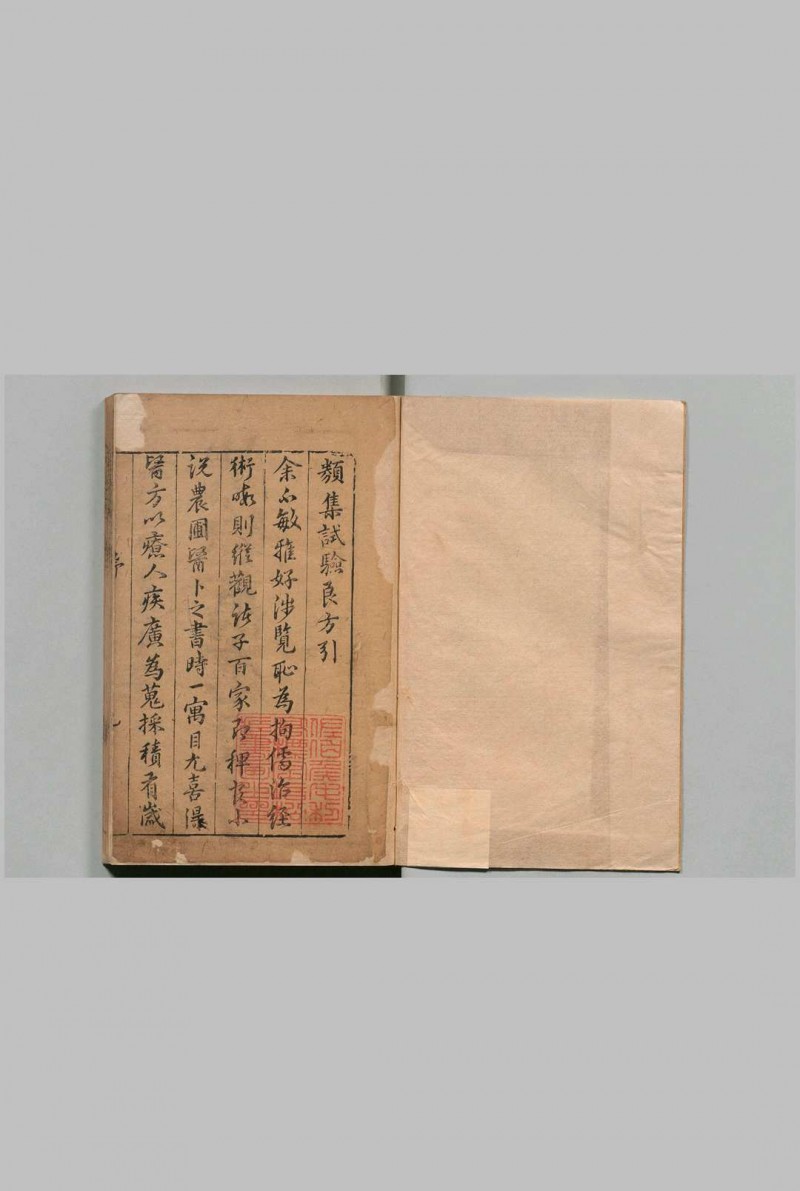 類集試驗良方引
余不敏雅好涉覽恥為拘儒治經
術暇則縱觀諸子百家即稗官小
說農圃醫卜之書時一寓目尤喜濕
醫方以療人疾廣為蒐採積有歲
序